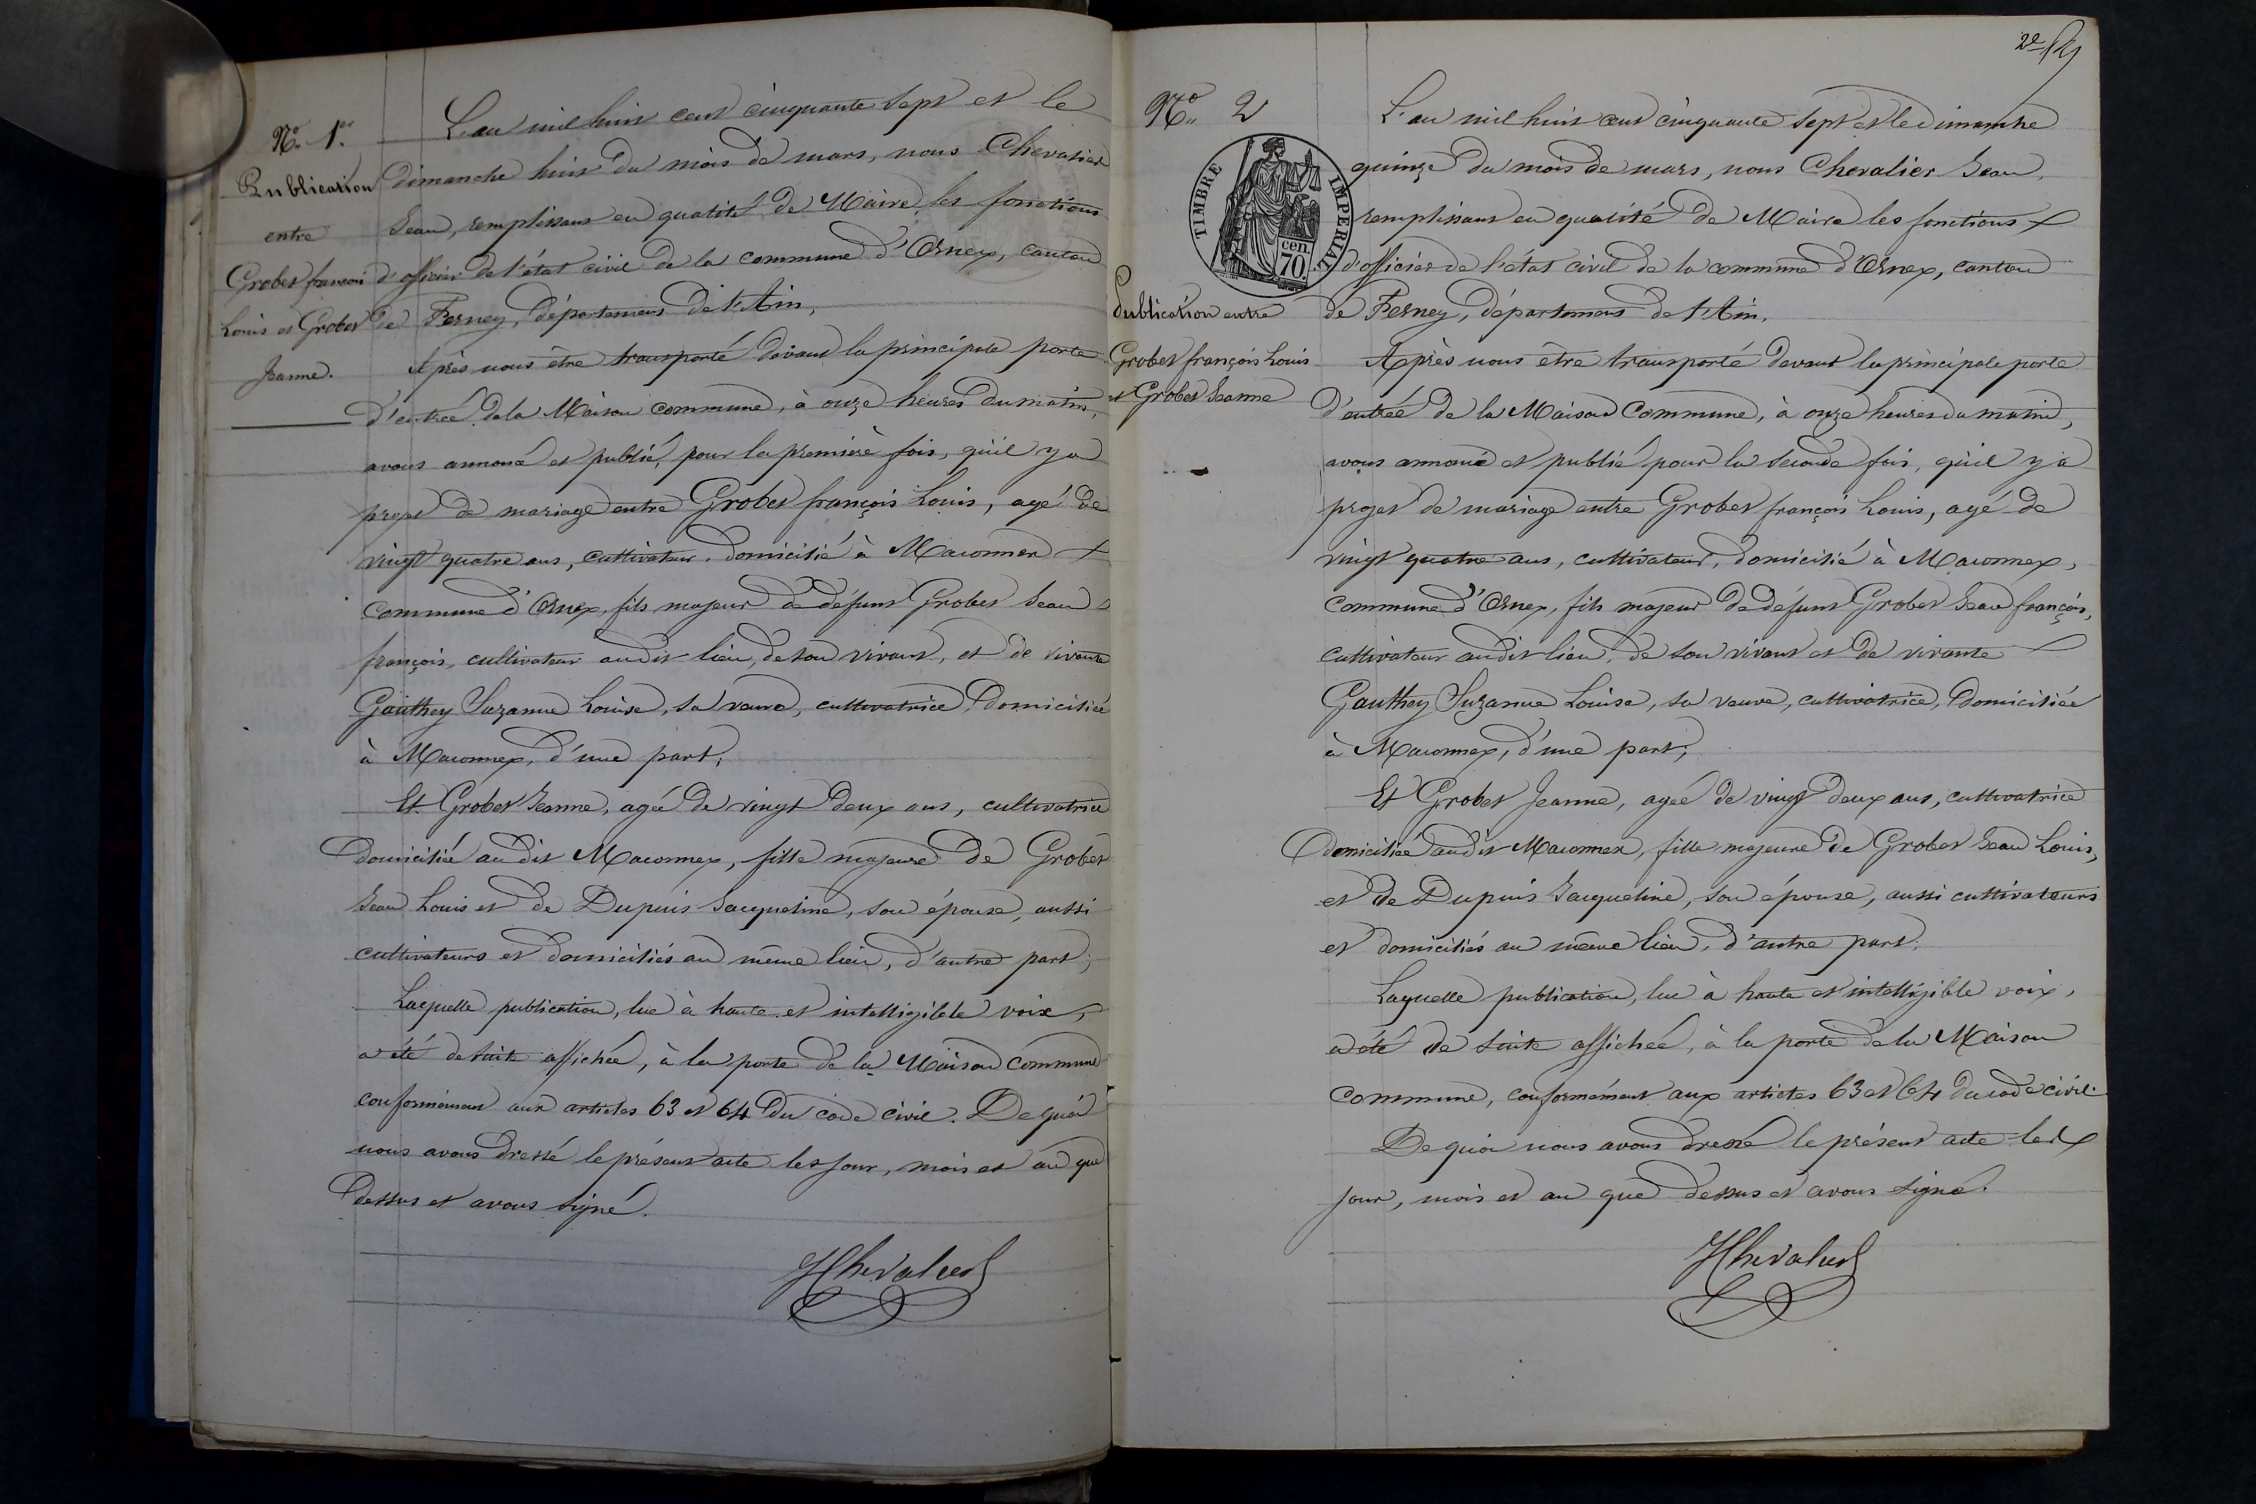 N.o 1.er
Publication
entre
Grobet françois
Louis et Grobet
Jeanne.
L'an mil huit cent cinquante sept et le
dimanche huit du mois de mars, nous Chevalier
Jean, remplissant en qualité de Maire les fonctions
d'officier de l'état civil de la commune d'Ornex, canton
de Ferney, département de l'Ain,
Après nous être transporté devant la principale porte
d'entrée de la Maison commune, à onze heures du matin,
avons annoncé et publié, pour la première fois, qu'il y a
projet de mariage entre Grobet françois Louis, agé de
vingt quatre ans, cultivateur, domicilié à Maconnex
commune d'Ornex, fils majeur de défunt Grobet Jean
françois, cultivateur audit lieu, de son vivant, et de vivante
Gauthey Suzanne Louise, sa veuve, cultivatrice, domiciliée
à Maconnex, d'une part;
Et Grobet Jeanne, agée de vingt deux ans, cultivatrice
domiciliée audit Maconnex, fille majeure de Grobet
Jean Louis et de Dupuis Jacqueline, son épouse, aussi
cultivateurs et domiciliés au même lieu, d'autre part;
Laquelle publication, lue à haute et intelligible voix,
a été de suite affichée, à la porte de la Maison commune
conformément aux articles 63 et 64 du code civil. De quoi
nous avons dressé le présent acte les jour, mois et an que
dessus et avons signé.
JChevalier
2e
N.o 2
TIMBRE IMPERIAL
cen.
70.
Publication entre
Grobet françois Louis
et Grobet Jeanne
L'an mil huit cent cinquante sept et le dimanche
quinze du mois de mars, nous Chevalier Jean,
remplissant en qualité de Maire les fonctions
d'officier de l'état civil de la commune d'Ornex, canton
de Ferney, département de l'Ain.
Après nous être transporté devant la principale porte
d'entrée de la Maison Commune, à onze heures du matin,
avons annoncé et publié pour la seconde fois, qu'il y a
projet de mariage entre Grobet françois Louis, agé de
vingt quatre ans, cultivateur, domicilié à Maconnex,
commune d'Ornex, fils majeur de défunt Grobet Jean françois,
cultivateur audit lieu, de son vivant et de vivante
Gauthey Suzanne Louise, sa veuve, cultivatrice, domiciliée
à Maconnex, d'une part;
Et Grobet Jeanne, agée de vingt deux ans, cultivatrice
domiciliée audit Maconnex, fille majeure de Grobet Jean Louis,
et de Dupuis Jacqueline, son épouse, aussi cultivateurs
et domiciliés au même lieu, d'autre part.
Laquelle publication, lue à haute et intelligible voix,
a été de suite affichée, à la porte de la Maison
commune, conformément aux articles 63 et 64 du code civil.
De quoi nous avons dressé le présent acte les
jour, mois et an que dessus et avons signé.
JChevalier